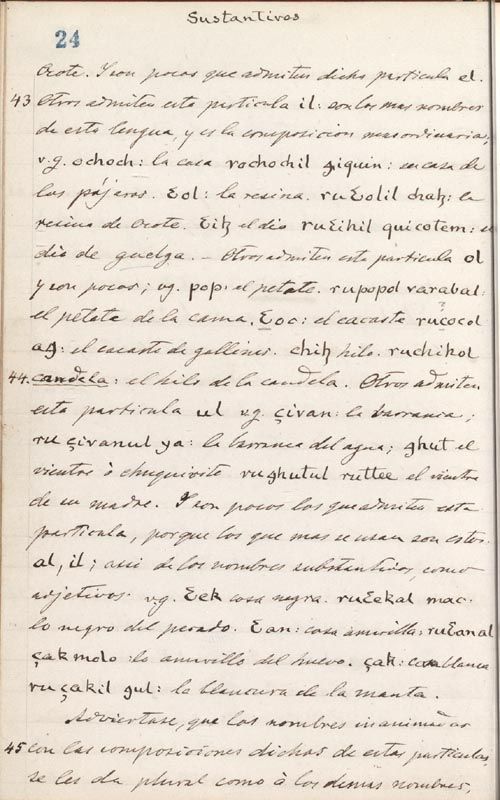 Sustantivos
24
Ocote. Y son pocos que admiten dicha particula el.
43 Otros admiten esta particula il: son los mas nombres
de esta lengua, y es la composicion mas ordinaria;
v.g. ochoch: la casa rochochil ꜩiquin: su casa de
los pájaros. Ɛol: la resina. ruƐolil chaꜩ: la
resina de Ocote. Ɛiꜩ el dia ruƐihil quicotem: su
dia de guelga. — Otros admiten esta particula ol
y son pocos; vg. pop: el petate. rupopol varabal:
el petate de la cama. Ɛoc: el cacaste ruçocol
aꜩ: el cacaste de gallinas. chiꜩ hilo. ruchihol
44. candela: el hilo de la candela. Otros admiten
esta particula ul v.g. çivan: la barranca;
ru çivanul ya: la barranca del agua; ghut el
vientre ò chuquivite rughutul ruttee el vientre
de su madre. Y son pocos los que admiten esta
particula, porque los que mas se usan son estos
al, il; assi de los nombres substantivos, como
adjetivos. v.g. Ɛek cosa negra. ruƐekal mac:
lo negro del pecado. Ɛan: cosa amarilla: ruƐanal
çak molo: lo amarillo del huevo. çak: cosa blanca
ru çakil gul: la blancura de la manta.
Adviertase, que los nombres inanimados
45 con las composiciones dichas de estas particulas,
se les da plural como à los demas nombres,